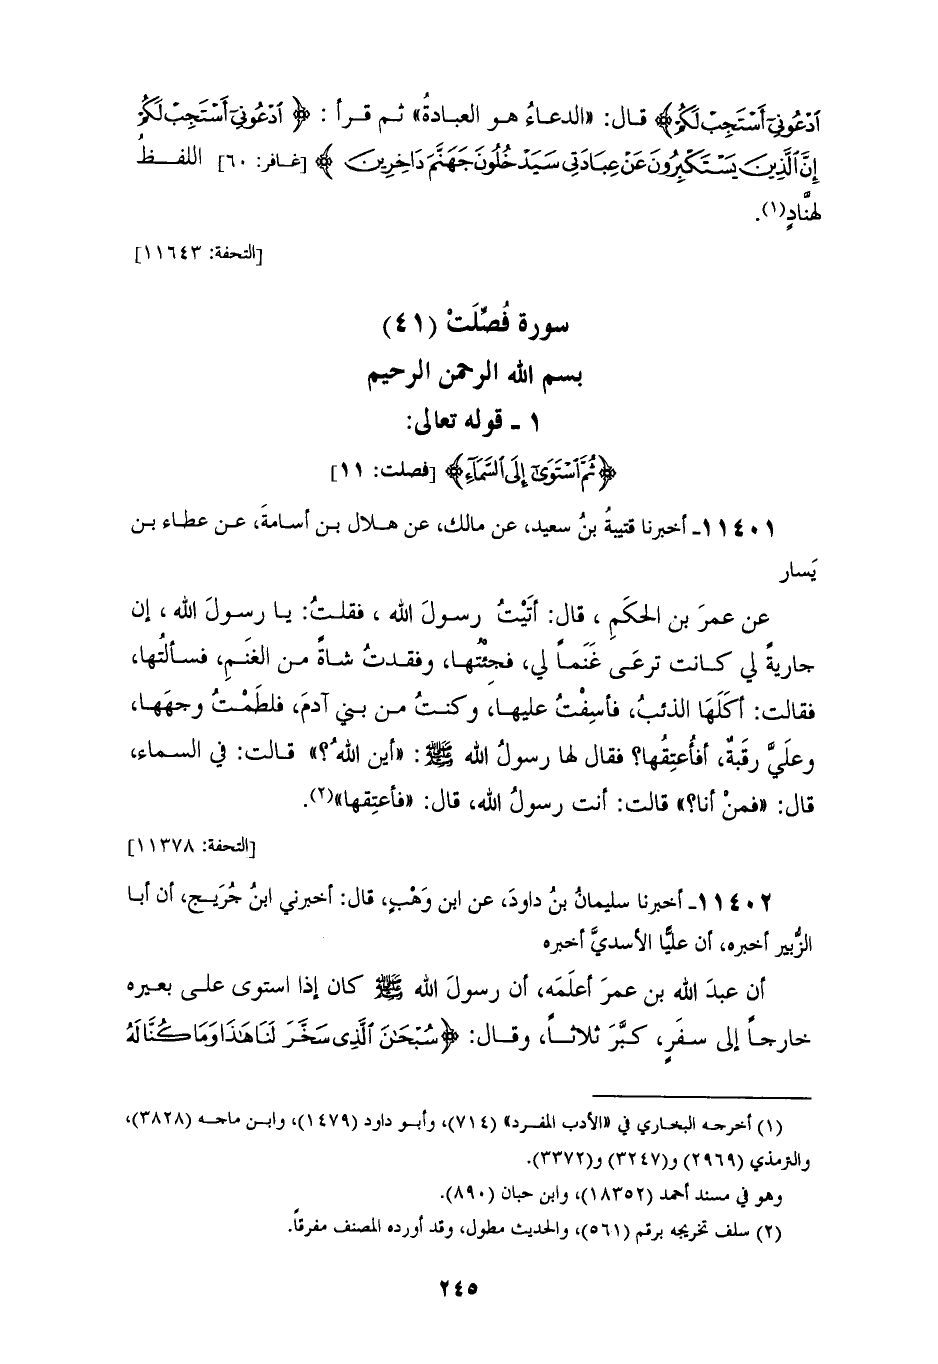 ٱدْعُونِيٓ أَسْتَجِبْ لَكُمْ﴾ قال: «الدعاءُ هو العبادةُ» ثم قرأ : ﴿ ٱدْعُونِيٓ أَسْتَجِبْ لَكُمْ
إِنَّ ٱلَّذِينَ يَسْتَكْبِرُونَ عَنْ عِبَادَتِي سَيَدْخُلُونَ جَهَنَّمَ دَاخِرِينَ ﴾ [غافر: ٦٠] اللفظُ
لهنَّادٍ(١).
[التحفة: ١١٦٤٣]
سورة فُصِّلَتْ (٤١)
بسم الله الرحمن الرحيم
١ ـ قوله تعالى:
﴿ثُمَّ ٱسْتَوَىٰٓ إِلَى ٱلسَّمَآءِ﴾ [فصلت: ١١]
١١٤٠١ـ أخبرنا قتيبةُ بنُ سعيد، عن مالك، عن هلال بن أسامةَ، عن عطاء بن
يَسار
عن عمرَ بن الحكَمِ ، قال: أتَيْتُ رسولَ الله ، فقلتُ: يا رسولَ الله ، إن
جاريةً لي كانت ترعَى غَنَماً لي، فجِئتُها، وفقدتُ شاةً من الغنَمِ، فسألتُها،
فقالت: أكَلَهَا الذئبُ، فأسِفْتُ عليها، وكنتُ من بني آدمَ، فلطَمْتُ وجهَها،
وعلَيَّ رقبَةٌ، أفأُعتِقُها؟ فقال لها رسولُ الله ﷺ: «أين اللهُ؟» قالت: في السماء،
قال: «فمنْ أنا؟» قالت: أنت رسولُ الله، قال: «فأعتِقها»(٢).
[التحفة: ١١٣٧٨]
١١٤٠٢ـ أخبرنا سليمانُ بنُ داودَ، عن ابن وَهْبٍ، قال: أخبرني ابنُ جُرَيج، أن أبا
الزُّبير أخبره، أن عليًّا الأسديَّ أخبره
أن عبدَ الله بن عمرَ أعلَمَه، أن رسولَ الله ﷺ كان إذا استوى على بعيره
خارجاً إلى سفَرٍ، كبَّرَ ثلاثاً، وقال: ﴿سُبْحَٰنَ ٱلَّذِي سَخَّرَ لَنَا هَٰذَا وَمَا كُنَّا لَهُ
(١) أخرجه البخاري في «الأدب المفرد» (٧١٤)، وأبو داود (١٤٧٩)، وابن ماجه (٣٨٢٨)،
والترمذي (٢٩٦٩) و(٣٢٤٧) و(٣٣٧٢).
وهو في مسند أحمد (١٨٣٥٢)، وابن حبان (٨٩٠).
(٢) سلف تخريجه برقم (٥٦١)، والحديث مطول، وقد أورده المصنف مفرقاً.
٢٤٥